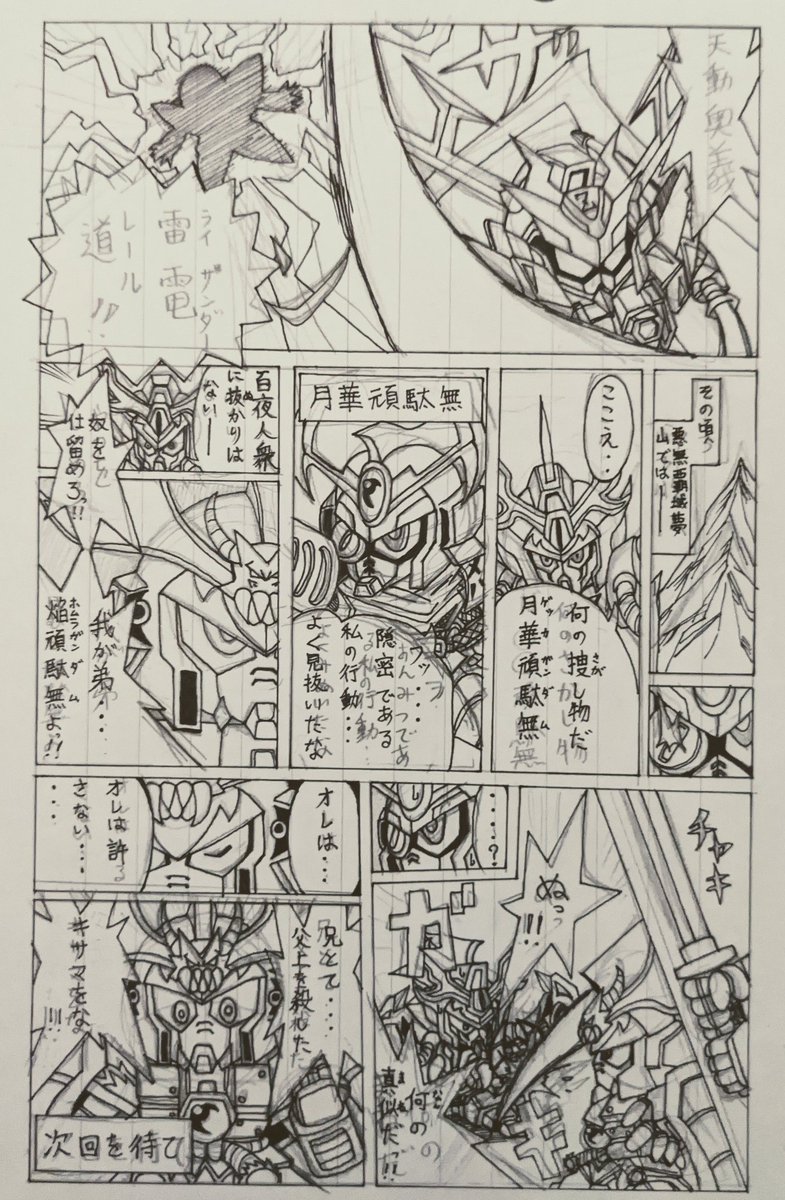 天動奥義
ライザンダー
雷電
レール
道!!
その頃、
悪無覇域夢
山では――
ここえ‥
何の捜し物だ
さが
月華頑駄無
ゲッカガンダム
月華頑駄無
ウッ‥‥
隠密である
私の行動‥‥
よく見抜いたな
百夜人衆
に抜かりは
ぬ
ない――
奴を
仕留めろっ!!
我が弟‥‥
焔頑駄無よっ!!
ホムラガンダム
‥‥?
チャキ
ぬっっ
!!!
ガ
キ
何の
なん
真似だっ!!
まね
オレは‥‥
オレは許
さない‥‥
‥‥
兄上て‥‥
父上を殺した
キサマをな
!!!
次回を待て